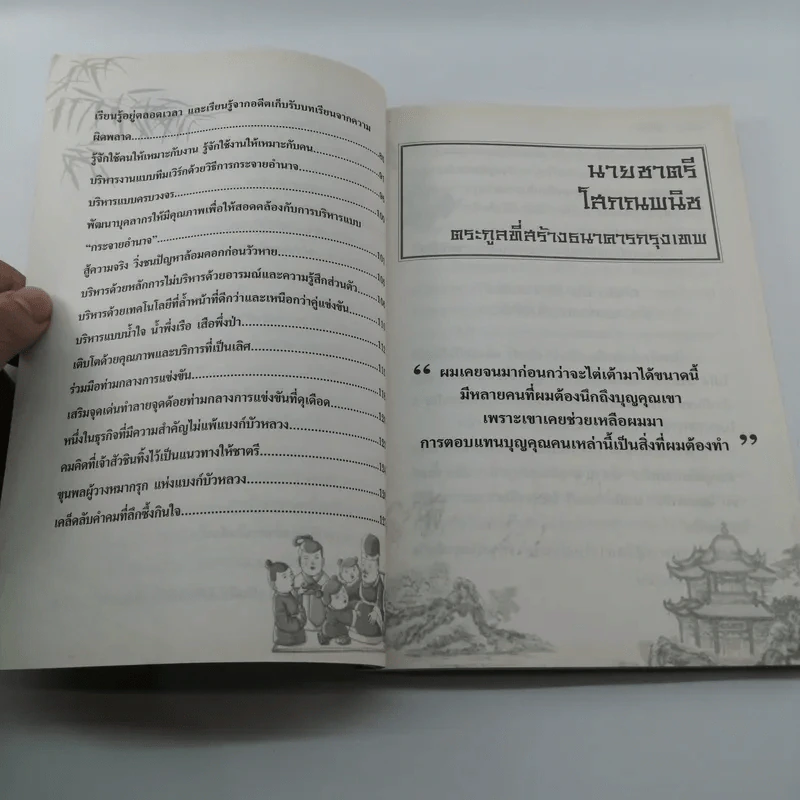 เรียนรู้อยู่ตลอดเวลา และเรียนรู้จากอดีตเก็บรับบทเรียนจากความ
ผิดพลาด
รู้จักใช้คนให้เหมาะกับงาน รู้จักใช้งานให้เหมาะกับคน
บริหารงานแบบทีมเวิร์กด้วยวิธีการกระจายอำนาจ
บริหารแบบครบวงจร
พัฒนาบุคลากรให้มีคุณภาพเพื่อให้สอดคล้องกับการบริหารแบบ
"กระจายอำนาจ"
สู้ความจริง วิ่งชนปัญหาล้อมคอกก่อนวัวหาย
บริหารด้วยหลักการไม่บริหารด้วยอารมณ์และความรู้สึกส่วนตัว
บริหารด้วยเทคโนโลยีที่ล้ำหน้าที่ดีกว่าและเหนือกว่าคู่แข่งขัน
บริหารแบบน้ำใจ น้ำพึ่งเรือ เสือพึ่งป่า
เติบโตด้วยคุณภาพและบริการที่เป็นเลิศ
ร่วมมือท่ามกลางการแข่งขัน
เสริมจุดเด่นทำลายจุดด้อยท่ามกลางการแข่งขันที่ดุเดือด
หนึ่งในธุรกิจที่มีความสำคัญไม่แพ้แบงก์บัวหลวง
คมคิดที่เจ้าสัวชินทิ้งไว้เป็นแนวทางให้ชาตรี
ขุนพลผู้วางหมากรุก แห่งแบงก์บัวหลวง
เคล็ดลับคำคมที่ลึกซึ้งกินใจ
นายชาตรี
โสภณพนิช
ตระกูลที่สร้างธนาคารกรุงเทพ
“ ผมเคยจนมาก่อนกว่าจะไต่เต้ามาได้ขนาดนี้
มีหลายคนที่ผมต้องนึกถึงบุญคุณเขา
เพราะเขาเคยช่วยเหลือผมมา
การตอบแทนบุญคุณคนเหล่านี้เป็นสิ่งที่ผมต้องทำ ”